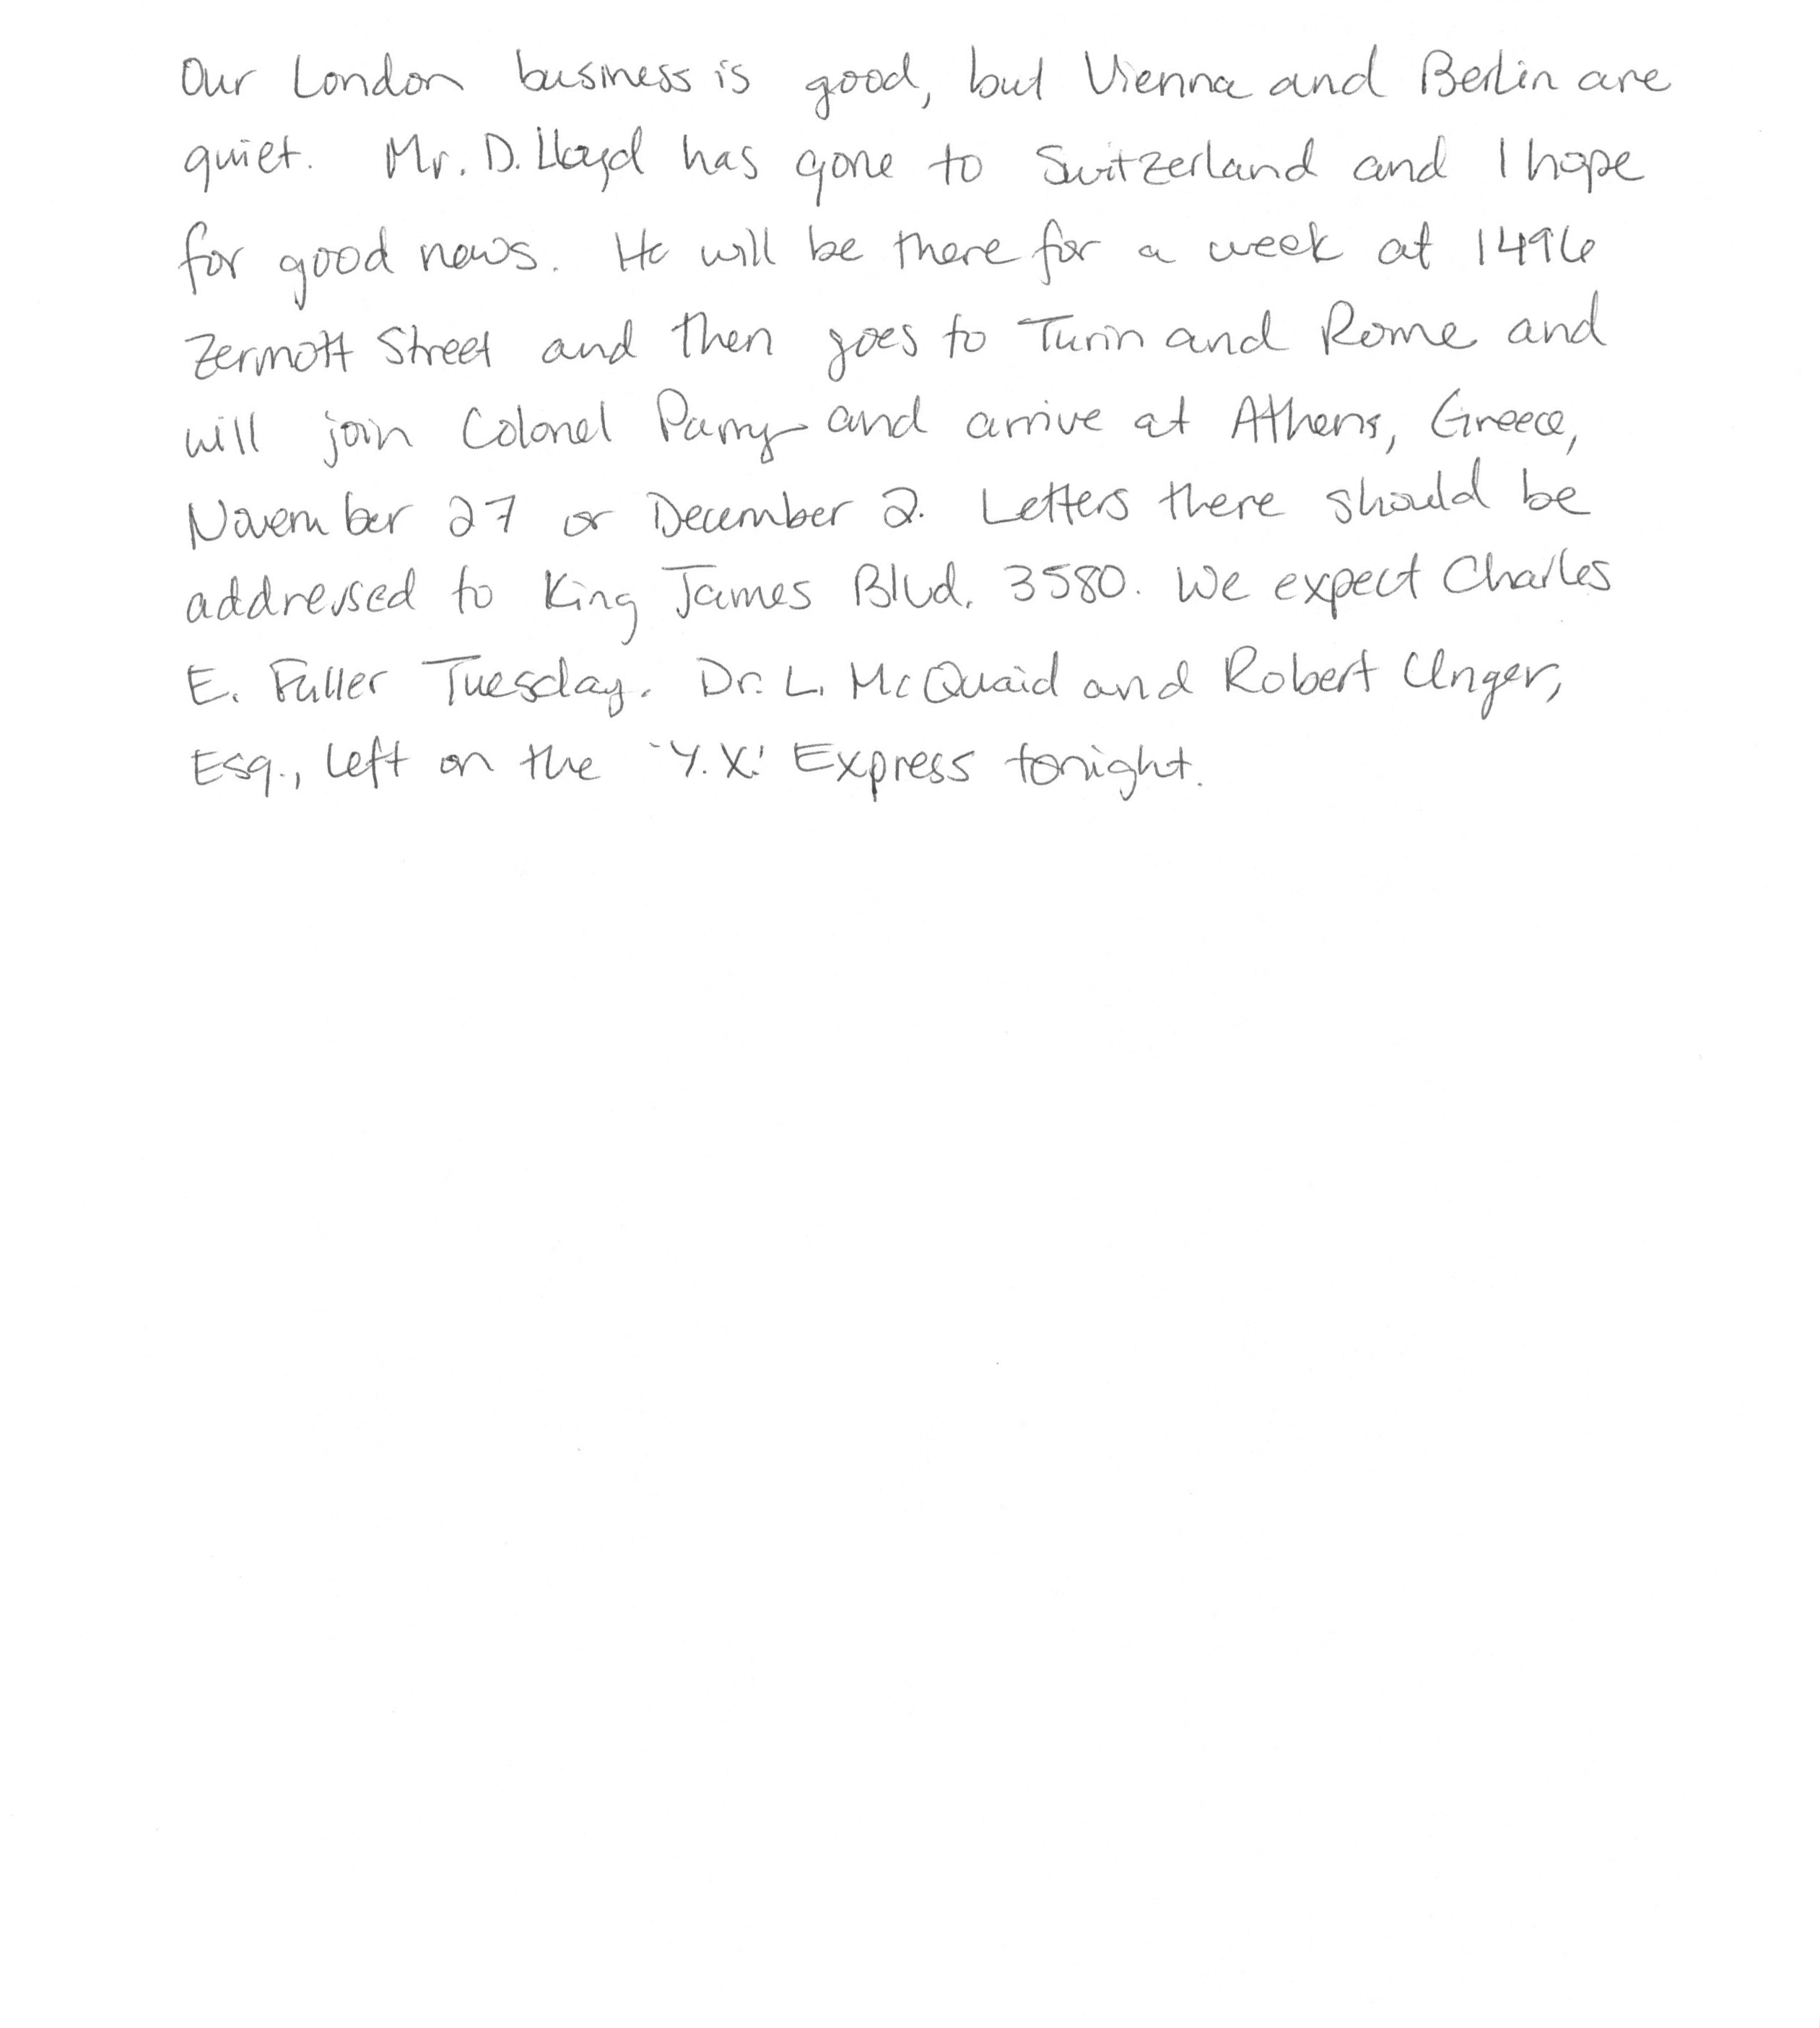 Our London business is good, but Vienna and Berlin are
quiet. Mr. D. Lloyd has gone to Switzerland and I hope
for good news. He will be there for a week at 1496
Zermott Street and then goes to Turin and Rome and
will join Colonel Parry and arrive at Athens, Greece,
November 27 or December 2. Letters there should be
addressed to King James Blvd. 3580. We expect Charles
E. Fuller Tuesday. Dr. L. McQuaid and Robert Unger,
Esq., left on the 'Y.X.' Express tonight.